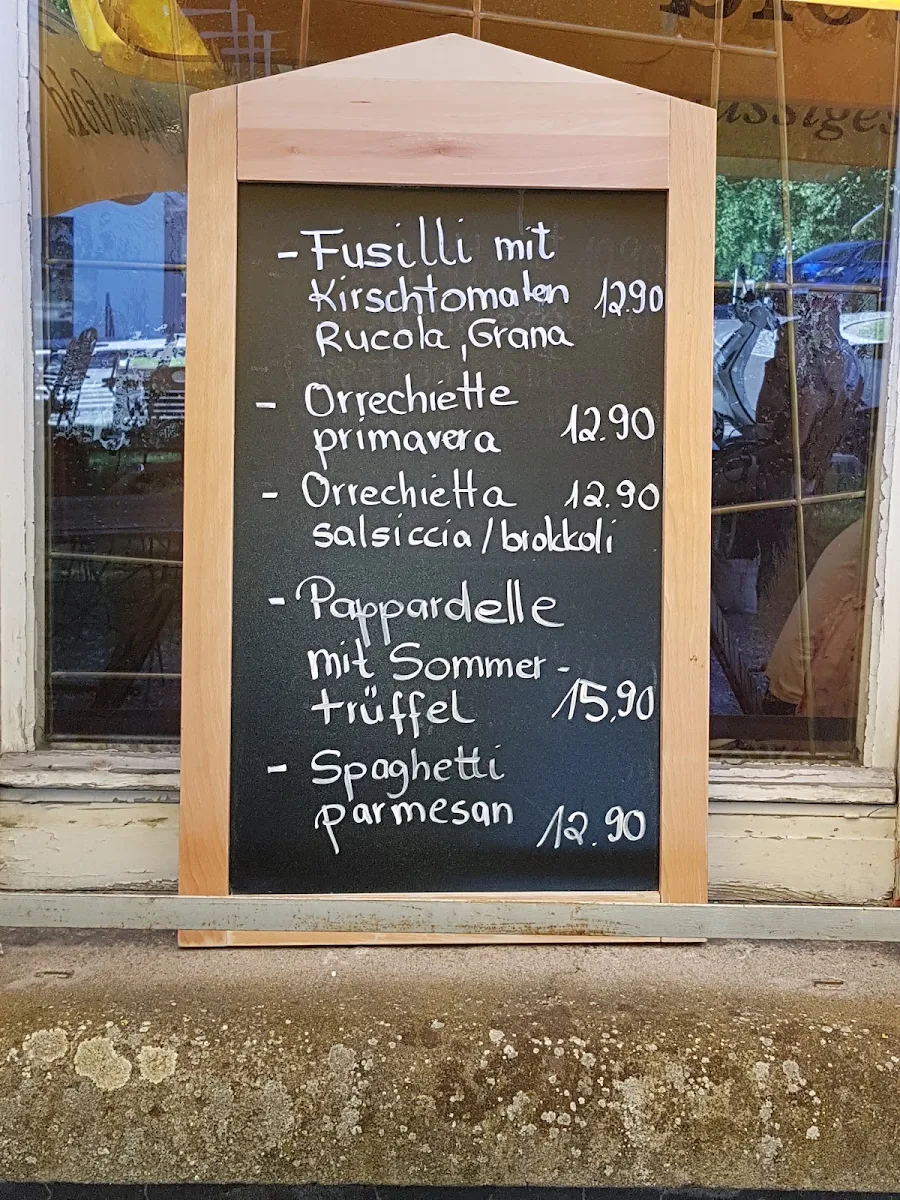 ssiges
- Fusilli mit
Kirschtomaten 12.90
Rucola, Grana
- Orrechiette
primavera 12.90
- Orrechietta 12.90
salsiccia/brokkoli
- Pappardelle
mit Sommer-
trüffel 15,90
- Spaghetti
parmesan 12.90